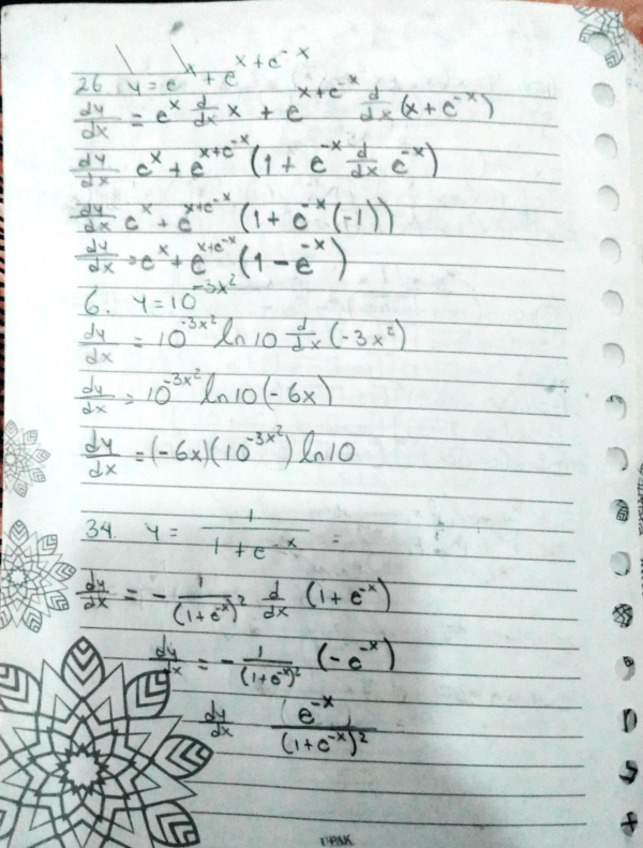 26 y = e^x + e^{x+e^{-x}}
dy/dx = e^x d/dx x + e^{x+e^{-x}} d/dx (x + e^{-x})
dy/dx e^x + e^{x+e^{-x}} (1 + e^{-x} d/dx e^{-x})
dy/dx e^x + e^{x+e^{-x}} (1 + e^{-x} (-1))
dy/dx = e^x + e^{x+e^{-x}} (1 - e^{-x})
6. y = 10^{-3x^2}
dy/dx = 10^{-3x^2} ln 10 d/dx (-3x^2)
dy/dx = 10^{-3x^2} ln 10 (-6x)
dy/dx = (-6x)(10^{-3x^2}) ln 10
34. y = 1/(1 + e^{-x}) =
dy/dx = - 1/(1+e^{-x})^2 d/dx (1 + e^{-x})
dy/dx = - 1/(1+e^{-x})^2 (-e^{-x})
dy/dx (e^{-x})/(1+e^{-x})^2